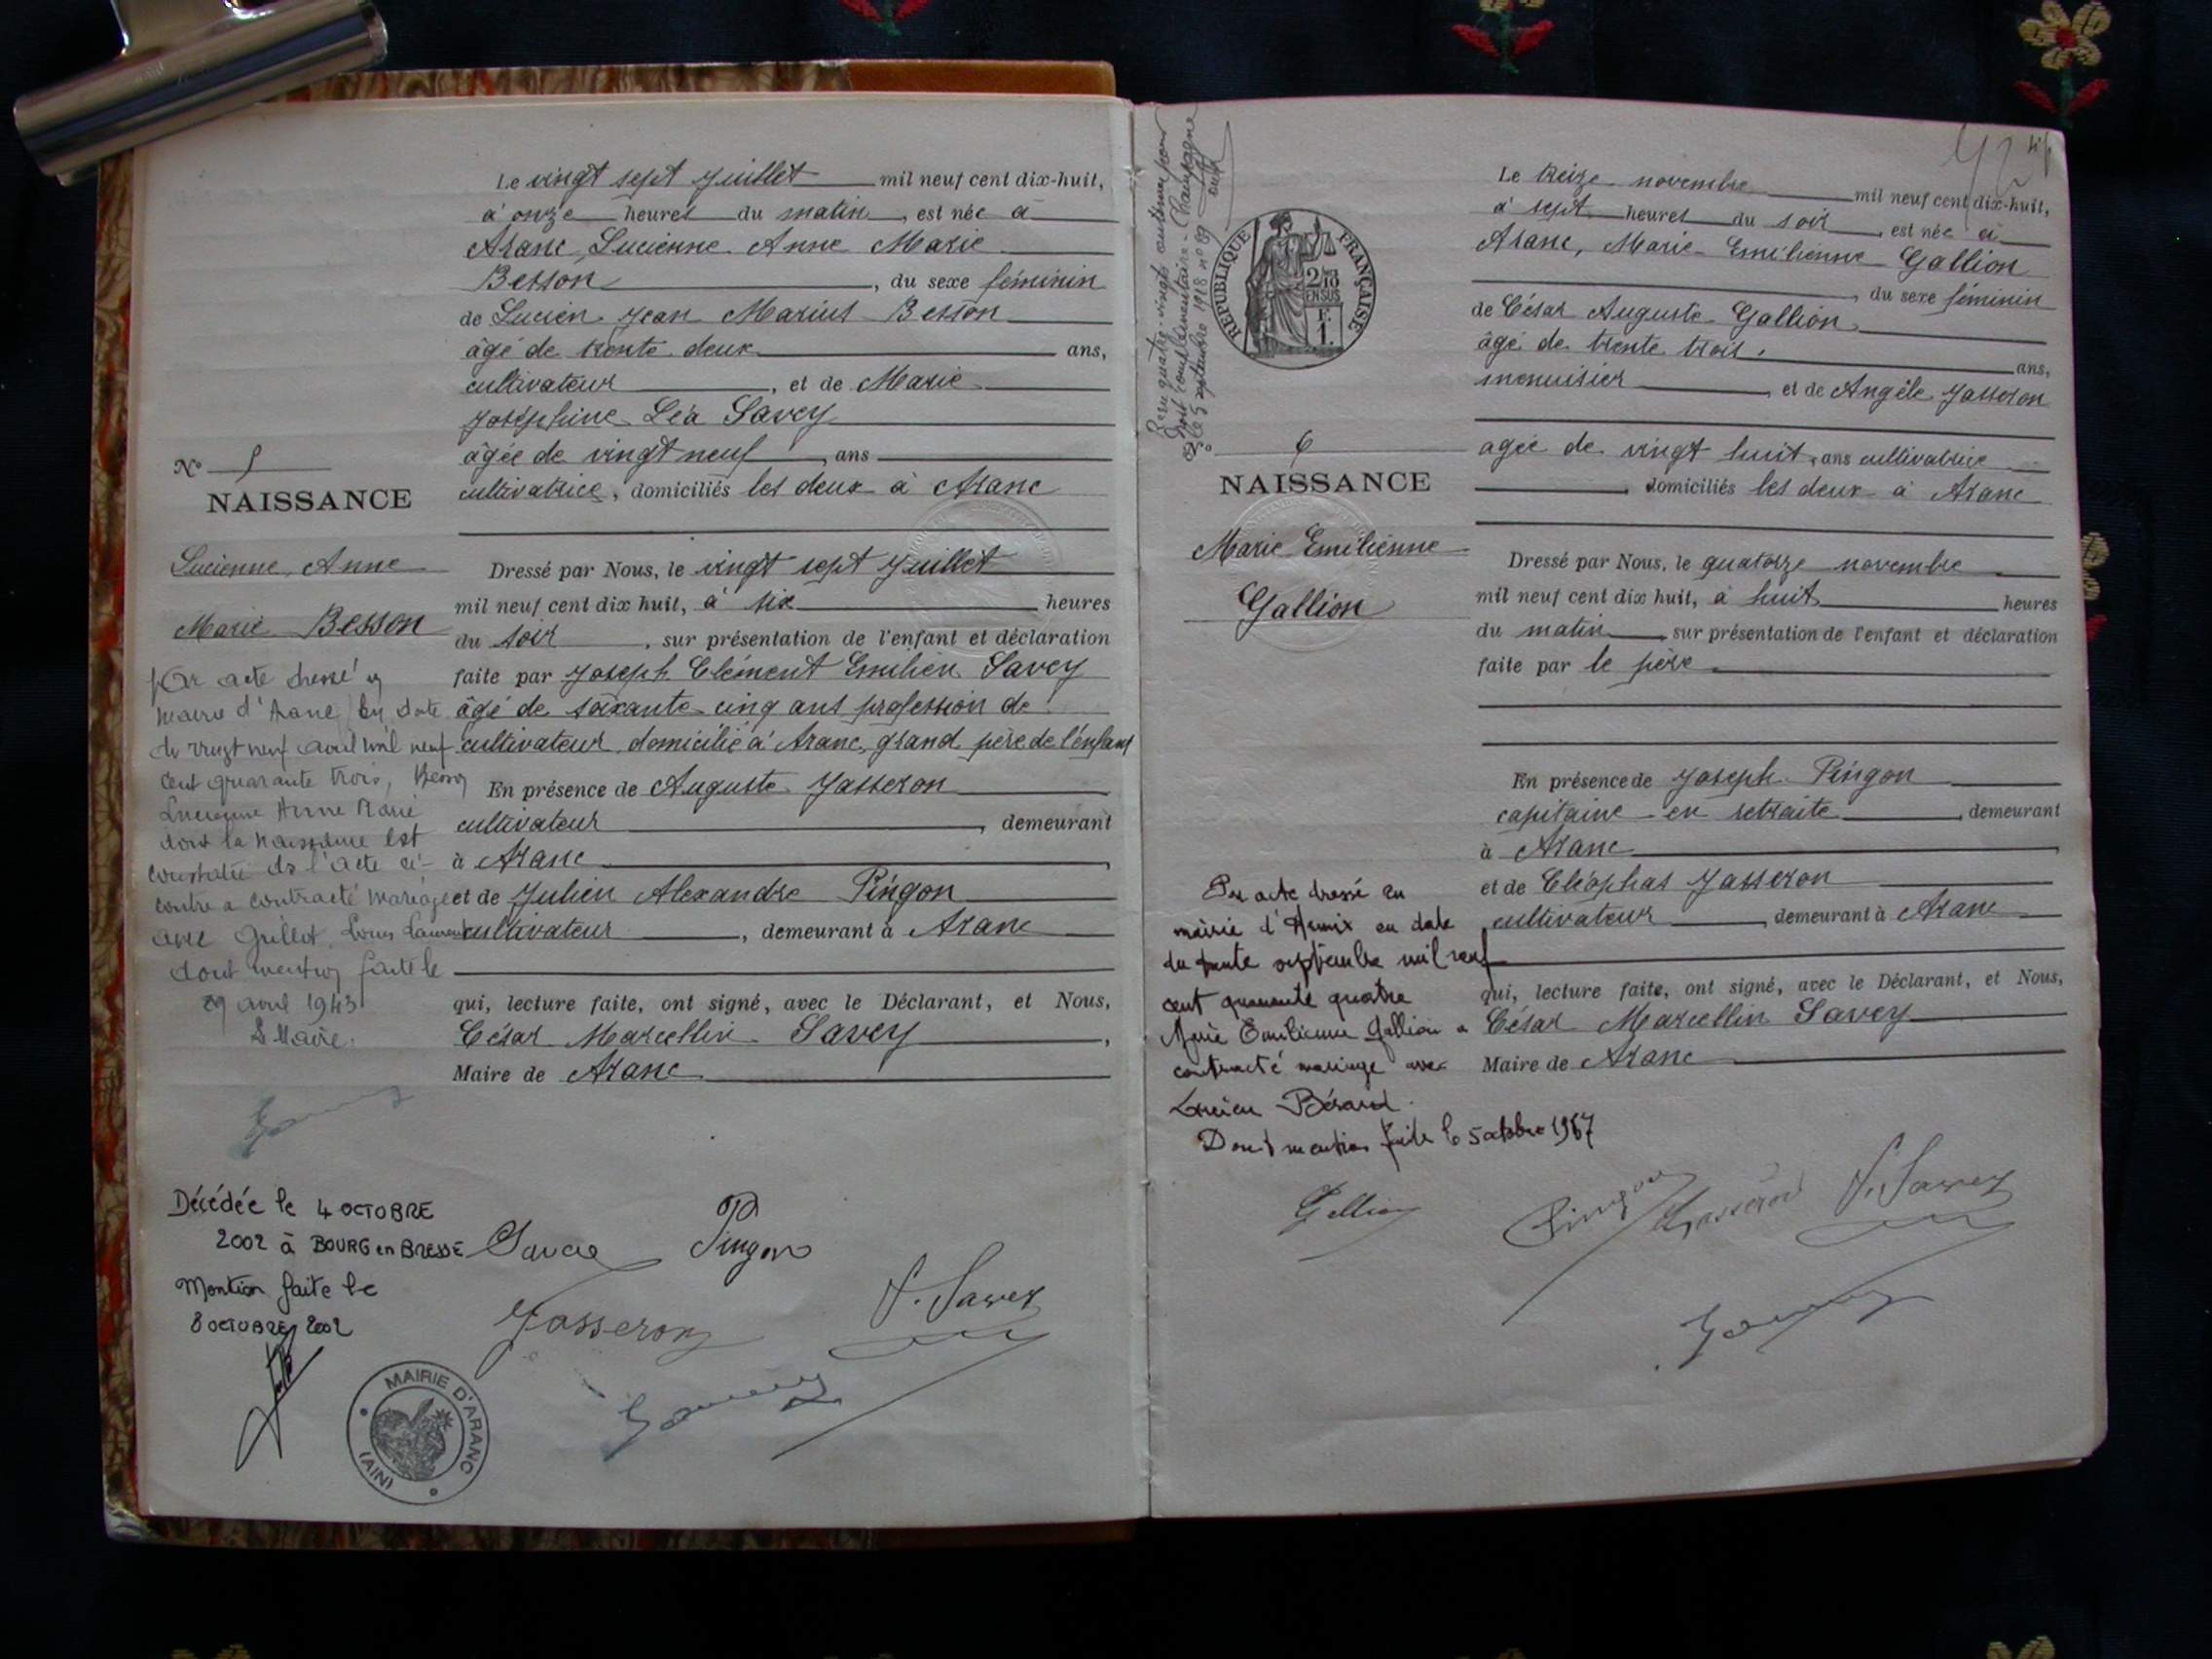 Le vingt sept Juillet mil neuf cent dix-huit,
à onze heures du matin, est née à
Aranc, Lucienne Anne Marie
Besson, du sexe féminin
de Lucien Jean Marius Besson
âgé de trente deux ans,
cultivateur, et de Marie
Joséphine Léa Savey
âgée de vingt neuf ans
cultivatrice, domiciliés les deux à Aranc
N° 5
NAISSANCE
Lucienne Anne
Marie Besson
Dressé par Nous, le vingt sept Juillet
mil neuf cent dix huit, à six heures
du soir, sur présentation de l'enfant et déclaration
faite par Joseph Clément Emilien Savey
âgé de soixante cinq ans profession de
cultivateur, domicilié à Aranc, grand père de l'enfant
En présence de Auguste Jasseron
cultivateur, demeurant
à Aranc
et de Julien Alexandre Pingon
cultivateur, demeurant à Aranc
qui, lecture faite, ont signé, avec le Déclarant, et Nous,
César Marcellin Savey,
Maire de Aranc
Par acte dressé en
mairie d'Aranc en date
du vingt neuf avril mil neuf
cent quarante trois, Besson
Lucienne Anne Marie
dont la naissance est
constatée ds l'acte ci-
contre a contracté mariage
avec Grillet, Louis Laurent
dont mention faite le
29 avril 1943
Le Maire.
Décédée le 4 OCTOBRE
2002 à BOURG en BRESSE
Mention faite le
8 OCTOBRE 2002
Pingon
Jasseron
Savey
MAIRIE D'ARANC
(AIN)
Reçu quatre-vingts centimes pour
droit complémentaire - Champagne
le 5 septembre 1918 n° 89
REPUBLIQUE FRANÇAISE
2/10
EN SUS
F.
1.
Le treize novembre mil neuf cent dix-huit,
à sept heures du soir, est née à
Aranc, Marie Emilienne Gallion
, du sexe féminin
de César Auguste Gallion
âgé de trente trois ans,
menuisier, et de Angèle Jasseron
agée de vingt huit, ans cultivatrice
, domiciliés les deux à Aranc
N° 6
NAISSANCE
Marie Emilienne
Gallion
Dressé par Nous, le quatorze novembre
mil neuf cent dix huit, à huit heures
du matin, sur présentation de l'enfant et déclaration
faite par le père
En présence de Joseph Pingon
capitaine en retraite, demeurant
à Aranc
et de Cléophas Jasseron
cultivateur, demeurant à Aranc
qui, lecture faite, ont signé, avec le Déclarant, et Nous,
César Marcellin Savey
Maire de Aranc
Par acte dressé en
mairie d'Armix en date
du trente septembre mil neuf
cent quarante quatre
Marie Emilienne Gallion a
contracté mariage avec
Lucien Bérard.
Dont mention faite le 5 octobre 1967
Gallion
Pingon
Jasseron
Savey